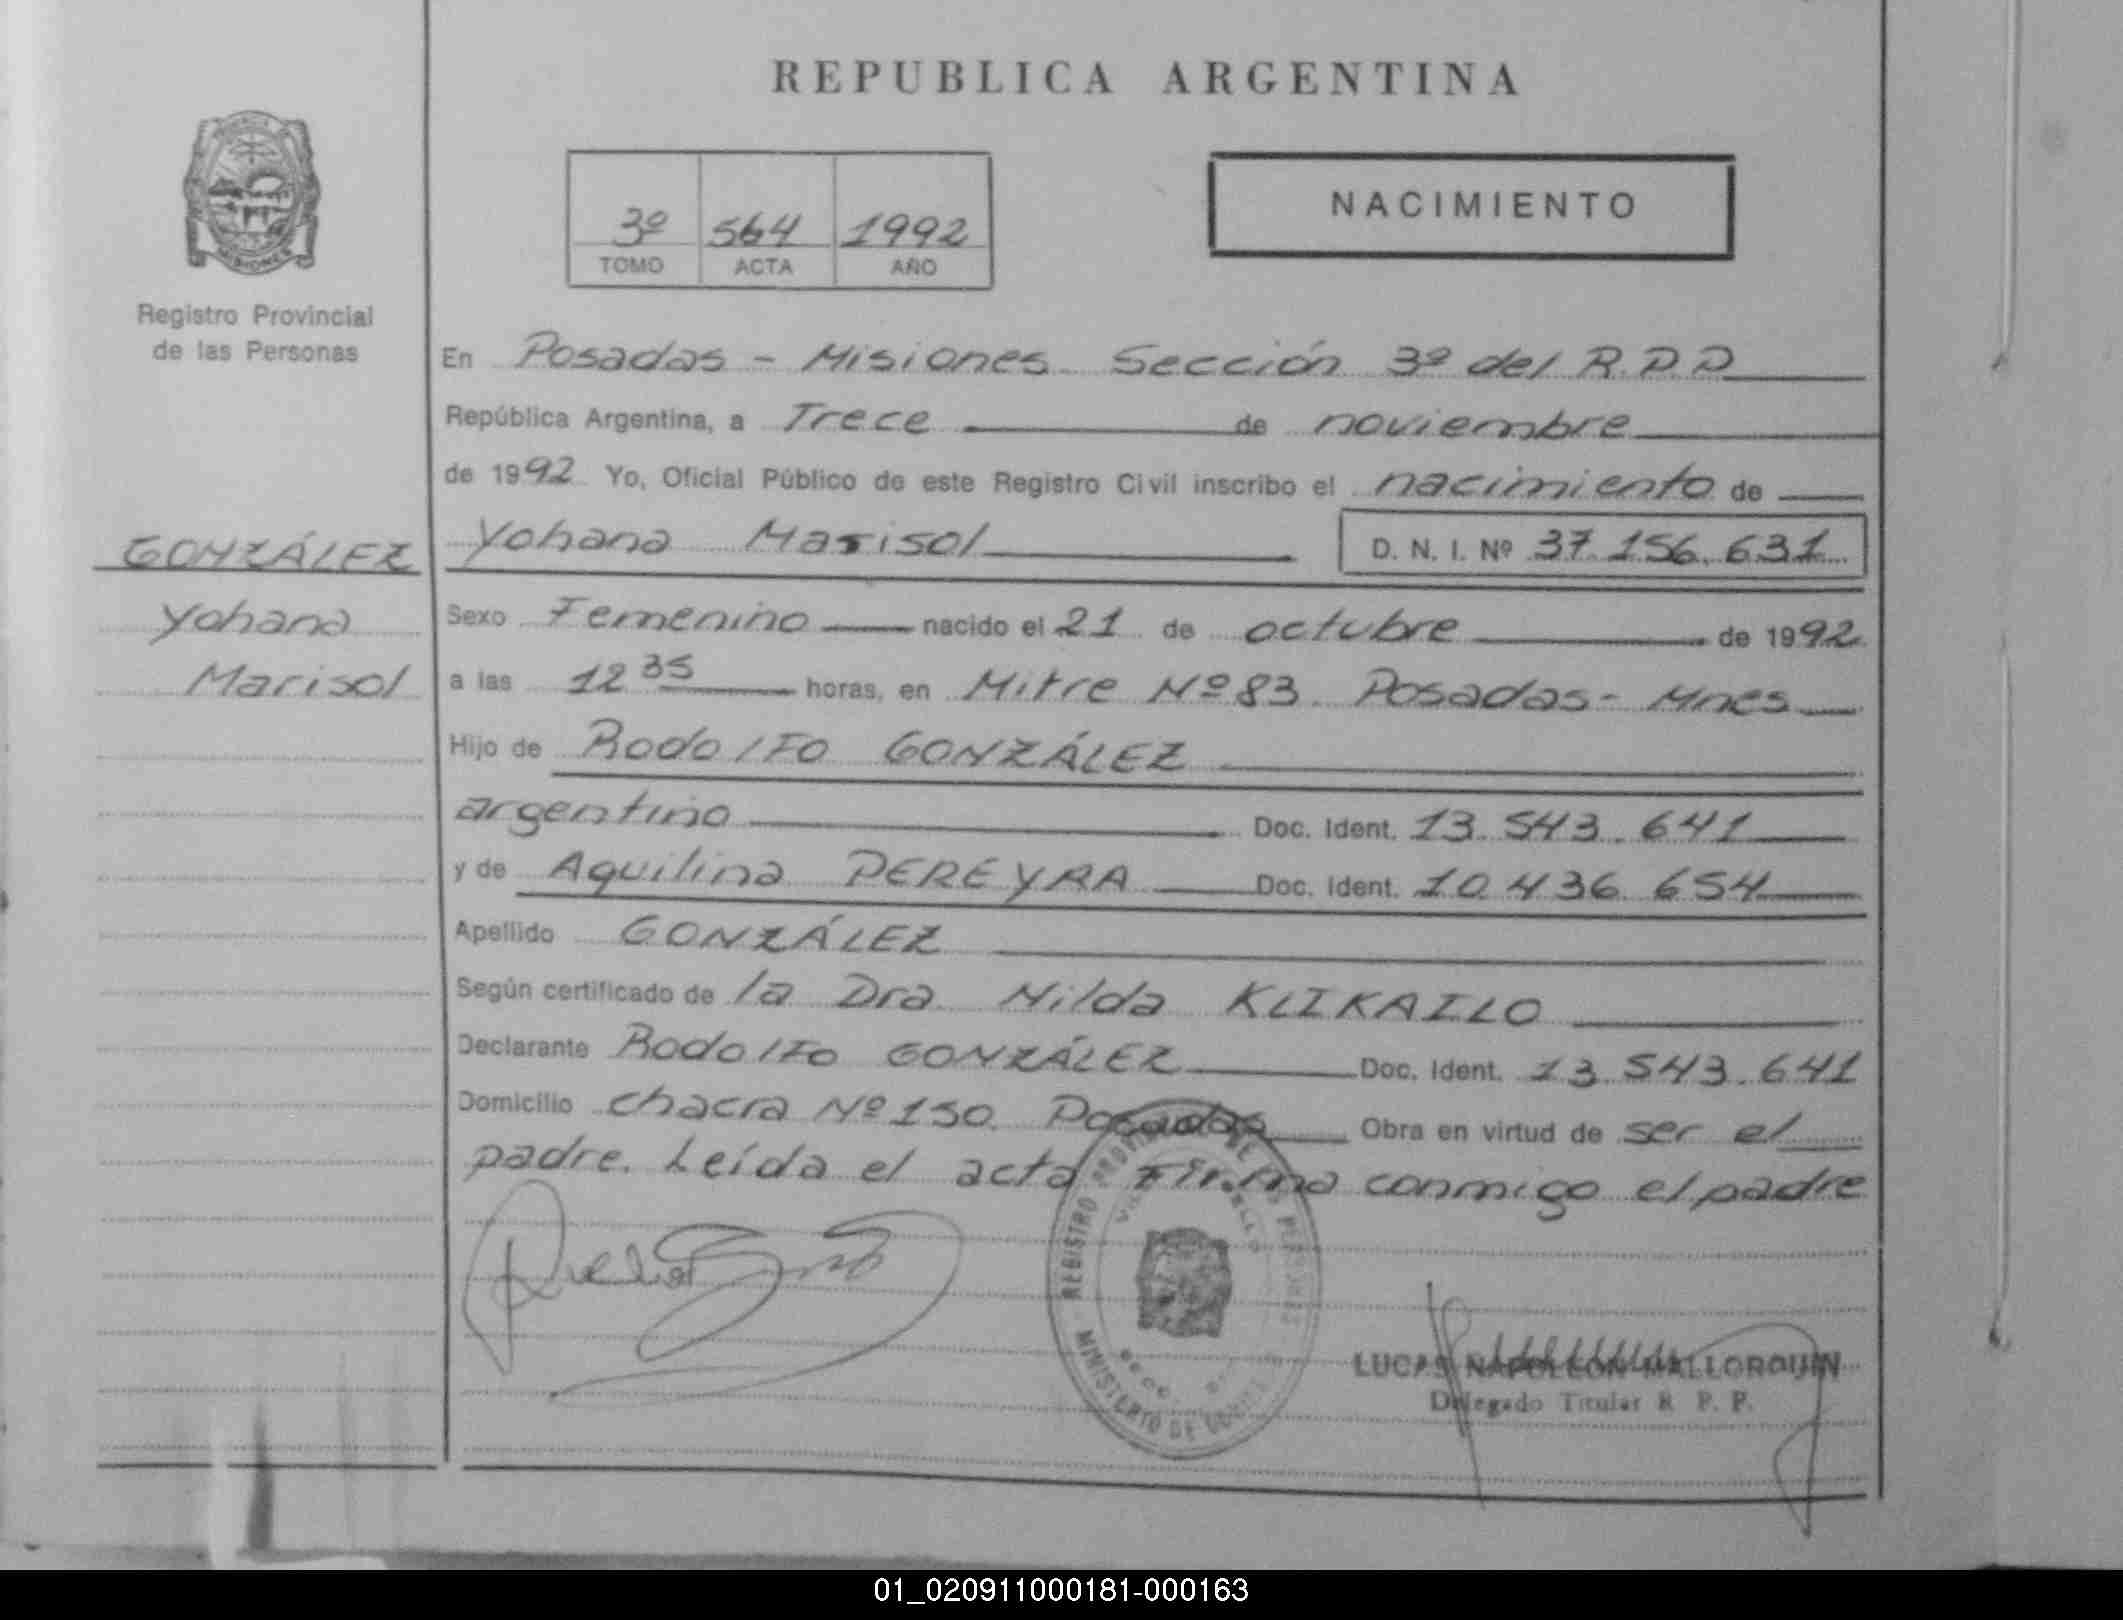 REPUBLICA ARGENTINA
MISIONES
Registro Provincial
de las Personas
3º 564 1992
TOMO ACTA AÑO
NACIMIENTO
En Posadas - Misiones Sección 3º del R.P.P
República Argentina, a Trece de noviembre
de 1992 Yo, Oficial Público de este Registro Civil inscribo el nacimiento de
GONZÁLEZ
Yohana
Marisol
Yohana Marisol D. N. I. Nº 37.156.631
Sexo Femenino nacido el 21 de octubre de 1992
a las 12 35 horas, en Mitre Nº 83 Posadas - Mnes
Hijo de Rodolfo GONZÁLEZ
argentino Doc. Ident. 13.543.641
y de Aquilina PEREYRA Doc. Ident. 10.436.654
Apellido GONZÁLEZ
Según certificado de la Dra Nilda KLIKAILO
Declarante Rodolfo GONZÁLEZ Doc. Ident. 13.543.641
Domicilio chacra Nº 150 Posadas Obra en virtud de ser el
padre. Leída el acta firma conmigo el padre
REGISTRO PROVINCIAL DE LAS PERSONAS
MINISTERIO DE
LUCAS NAPOLEON MALLORQUIN
Delegado Titular R. P. P.
01_020911000181-000163